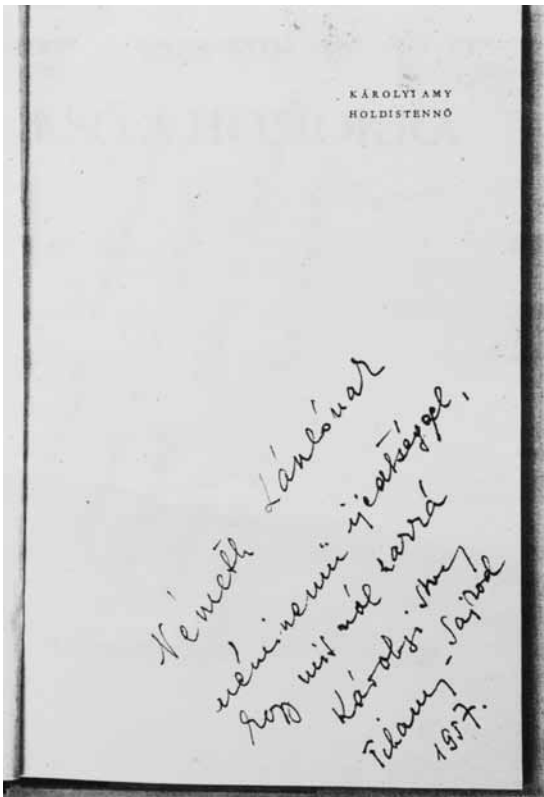 KÁROLYI AMY
HOLDISTENNŐ
Németh Lászlónak
néminemű ijedtséggel,
hogy mit szól hozzá
Károlyi Amy
Tihany-Sajkod
1957.